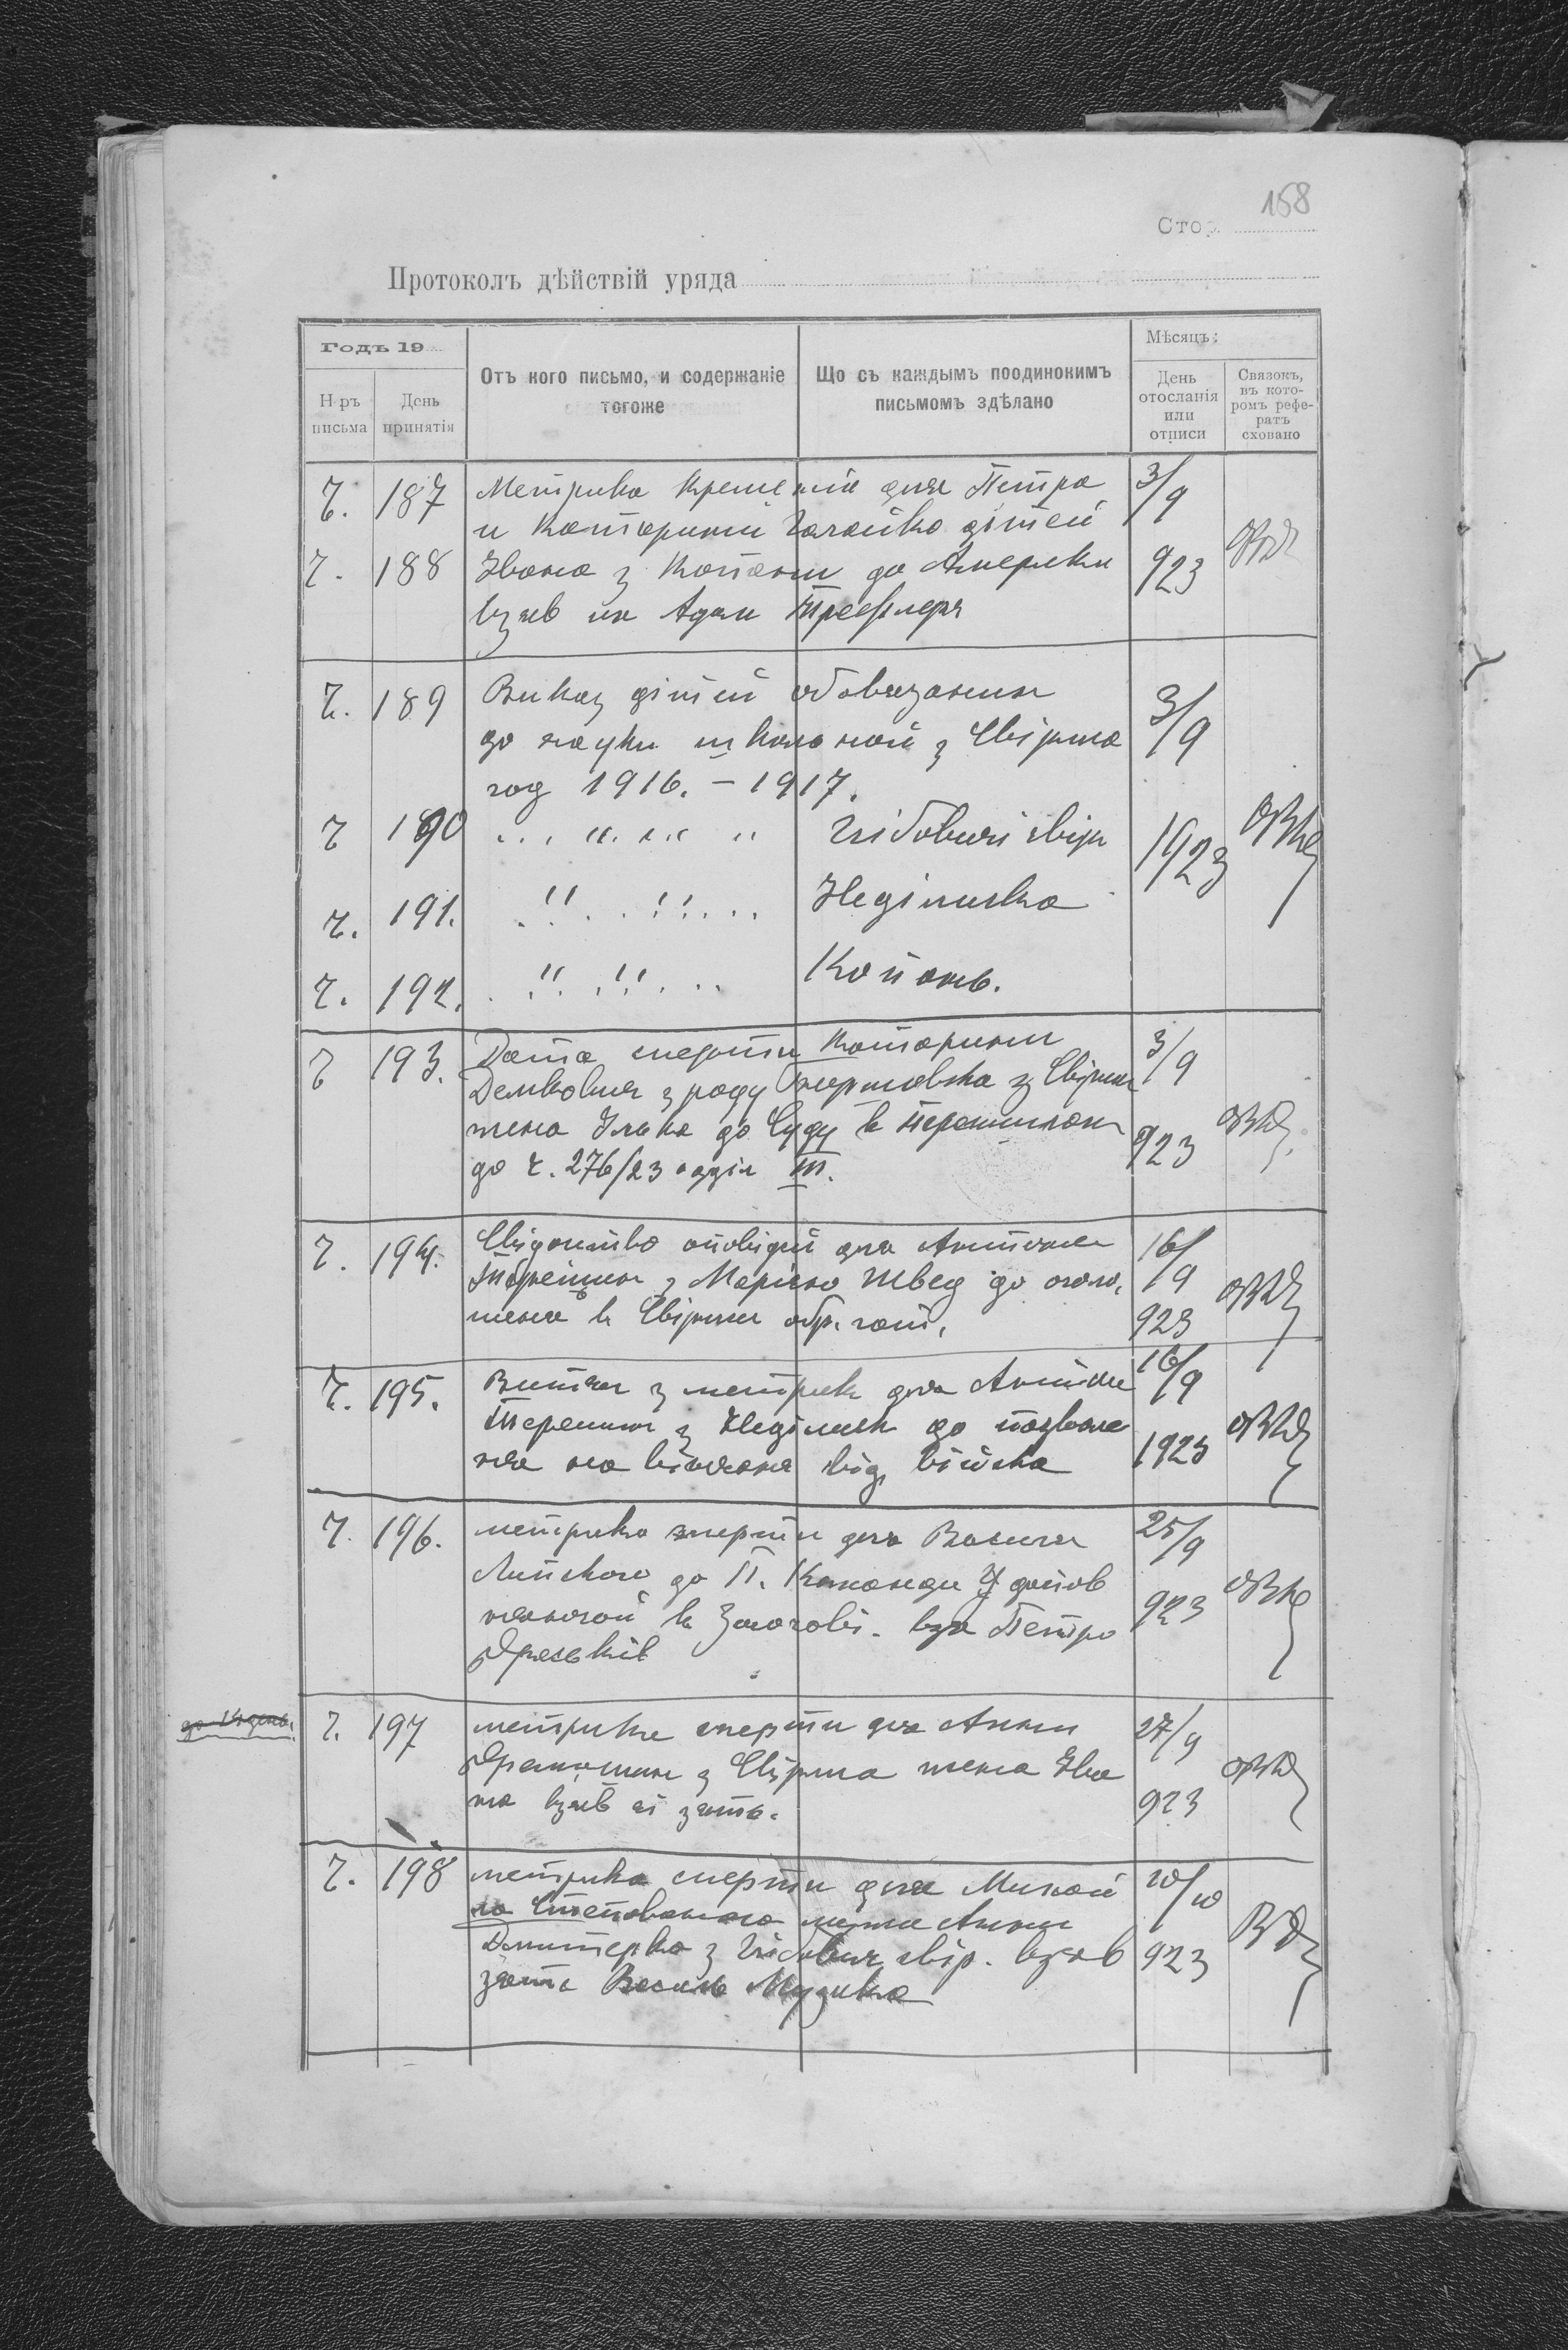 158
Стор.
Протоколъ дѣйствій уряда
Годъ 19
Н-ръ письма
День принятія
Отъ кого письмо, и содержаніе тогоже
Що съ каждымъ поодинокимъ письмомъ здѣлано
Мѣсяцъ:
День отосланія или отписи
Связокъ, въ кото-ромъ рефе-ратъ сховано
Ч. 187 Метрика крещенія для Петра 3/9
и Катарини дітей
Ч. 188 Івана з Копани до Америки 923
взяв их Адам
Ч. 189 Виказ дітей обовязаних 3/9
до науки шкільной з Свіржа
год 1916. – 1917.
Ч 190 Глібович свірж 1923
Ч. 191. Неділиска
Ч. 192. Копань.
Ч 193. Дата смерти Катарини 3/9
Демкович з роду з Свіржа
жена Ілька до Суду в Перемишлян 923
до ч. 276/23 відділ III.
Ч. 194. Свідоцтво оповідий для Антона 16/9
з Марією Швед до оголо,
шена в Свіржи обр. лат. 923
Ч. 195. Витяг з метрик для Антона 16/9
Терешин з Неділиск до позволе
ня на вінчаня від війска 1923
Ч. 196. метрика смерти для Василя 25/9
Липского до П. Команди Уzупов
няючой в Золочові. взяв Петро 923
Ч. 197 метрика смерти для Анни 27/9
з Свіржа жена Іва
на взяв еі зять. 923
Ч. 198 метрика смерти для Микой 10/10
ла мужа Анни
Дмитерко з Глібович свір. взяв 923
зять Василь Музика